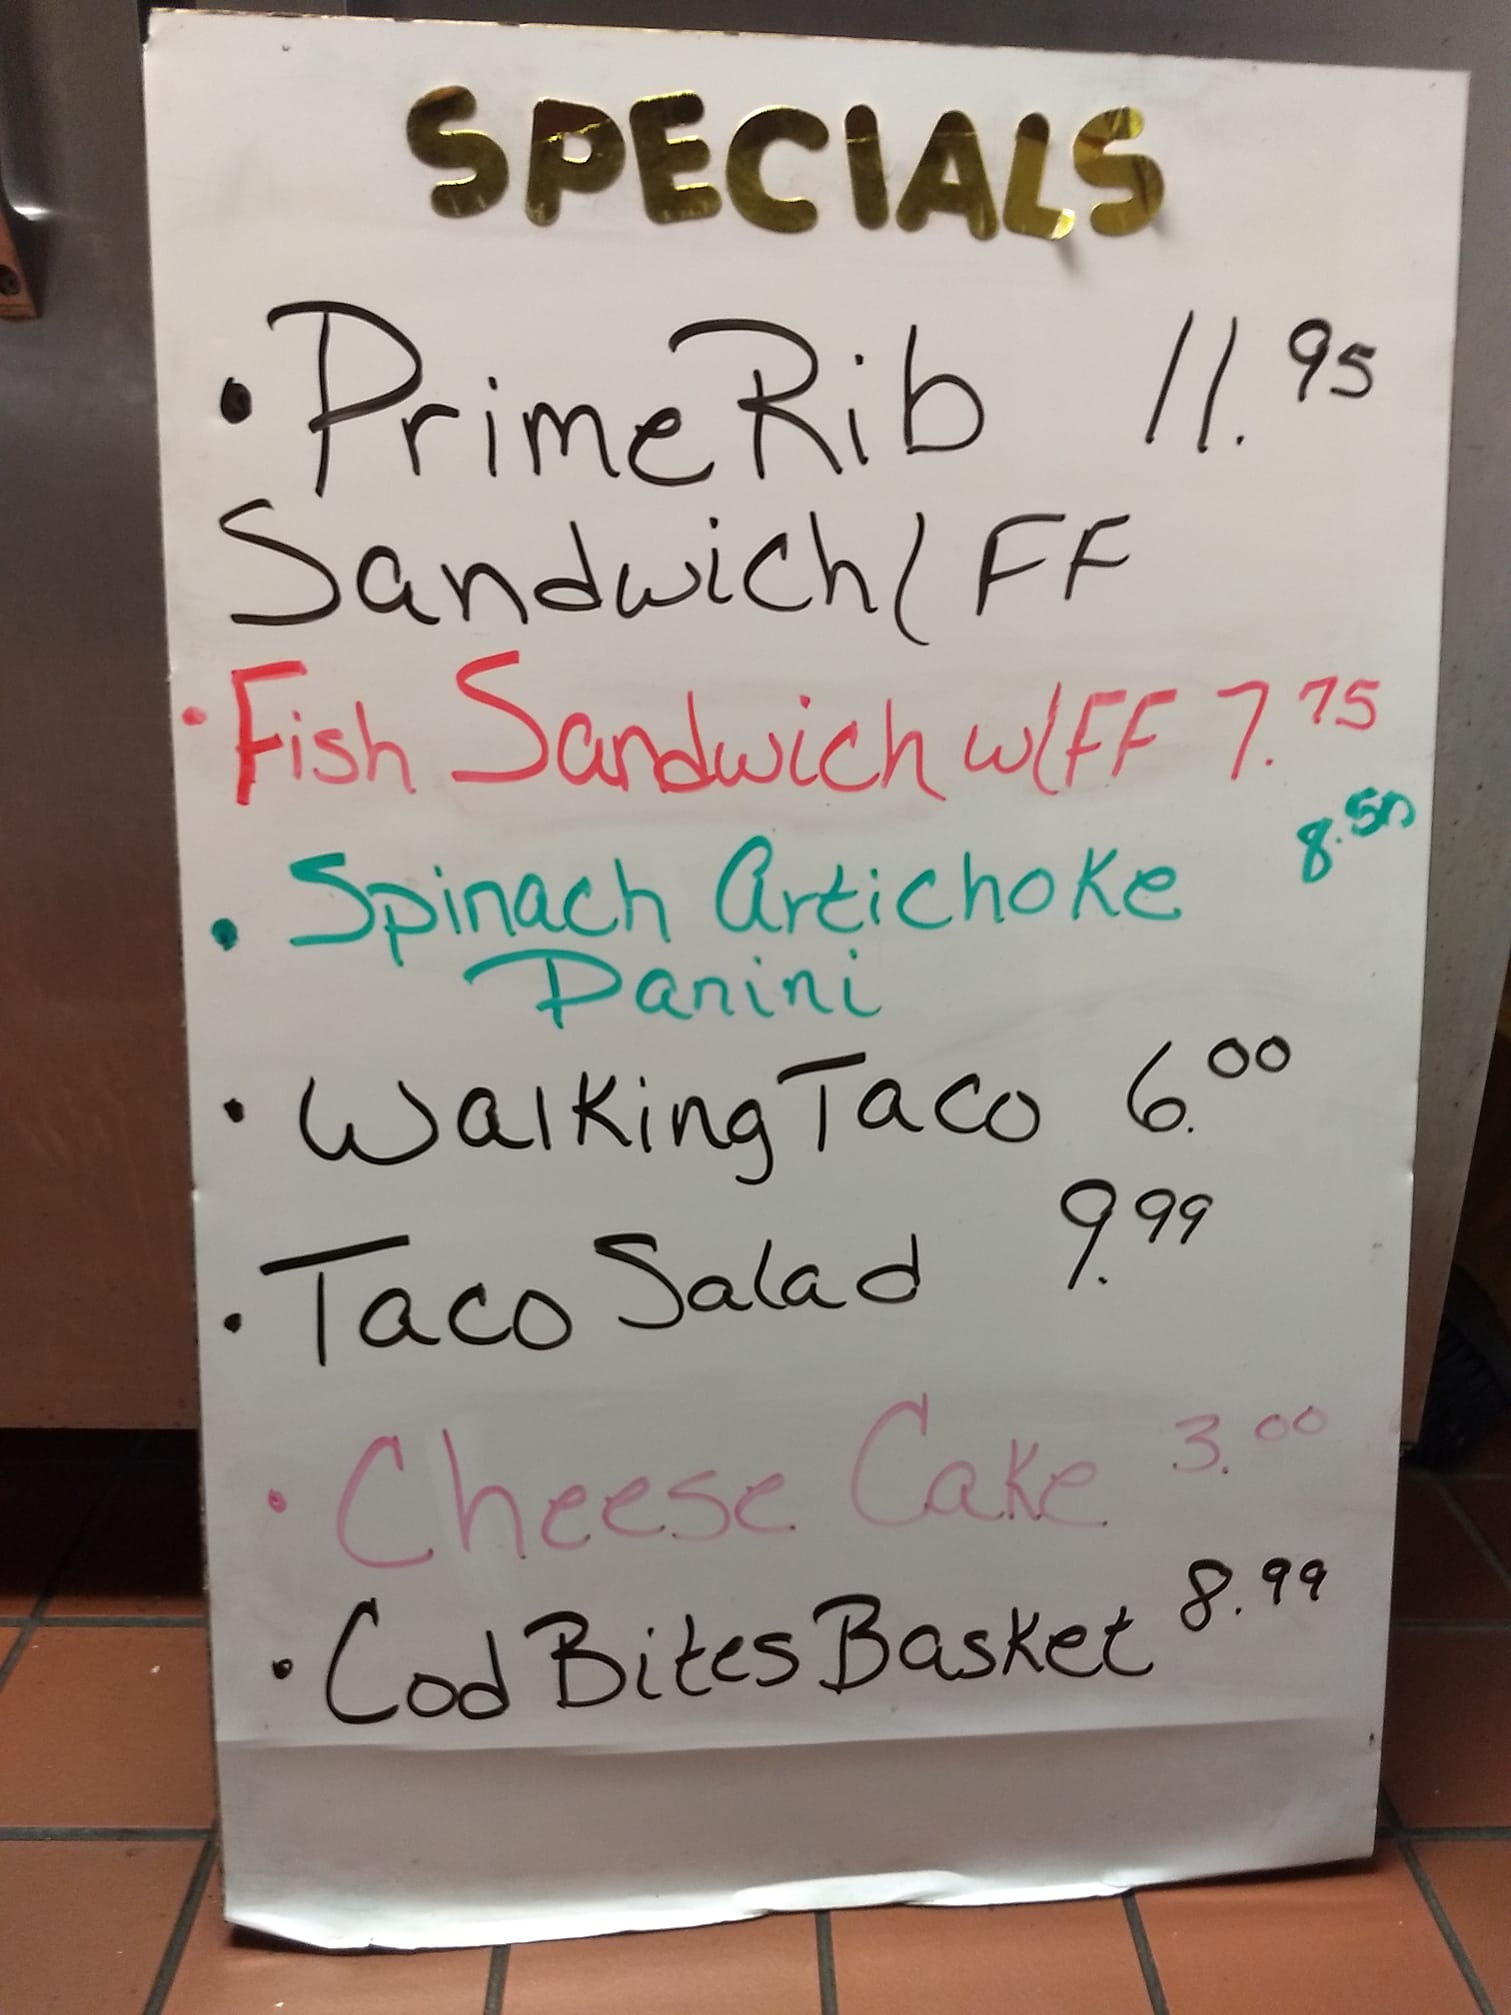 SPECIALS
• Prime Rib 11.95
Sandwich/FF
• Fish Sandwich w/FF 7.75
• Spinach Artichoke 8.50
Panini
• Walking Taco 6.00
• Taco Salad 9.99
• Cheese Cake 3.00
• Cod Bites Basket 8.99